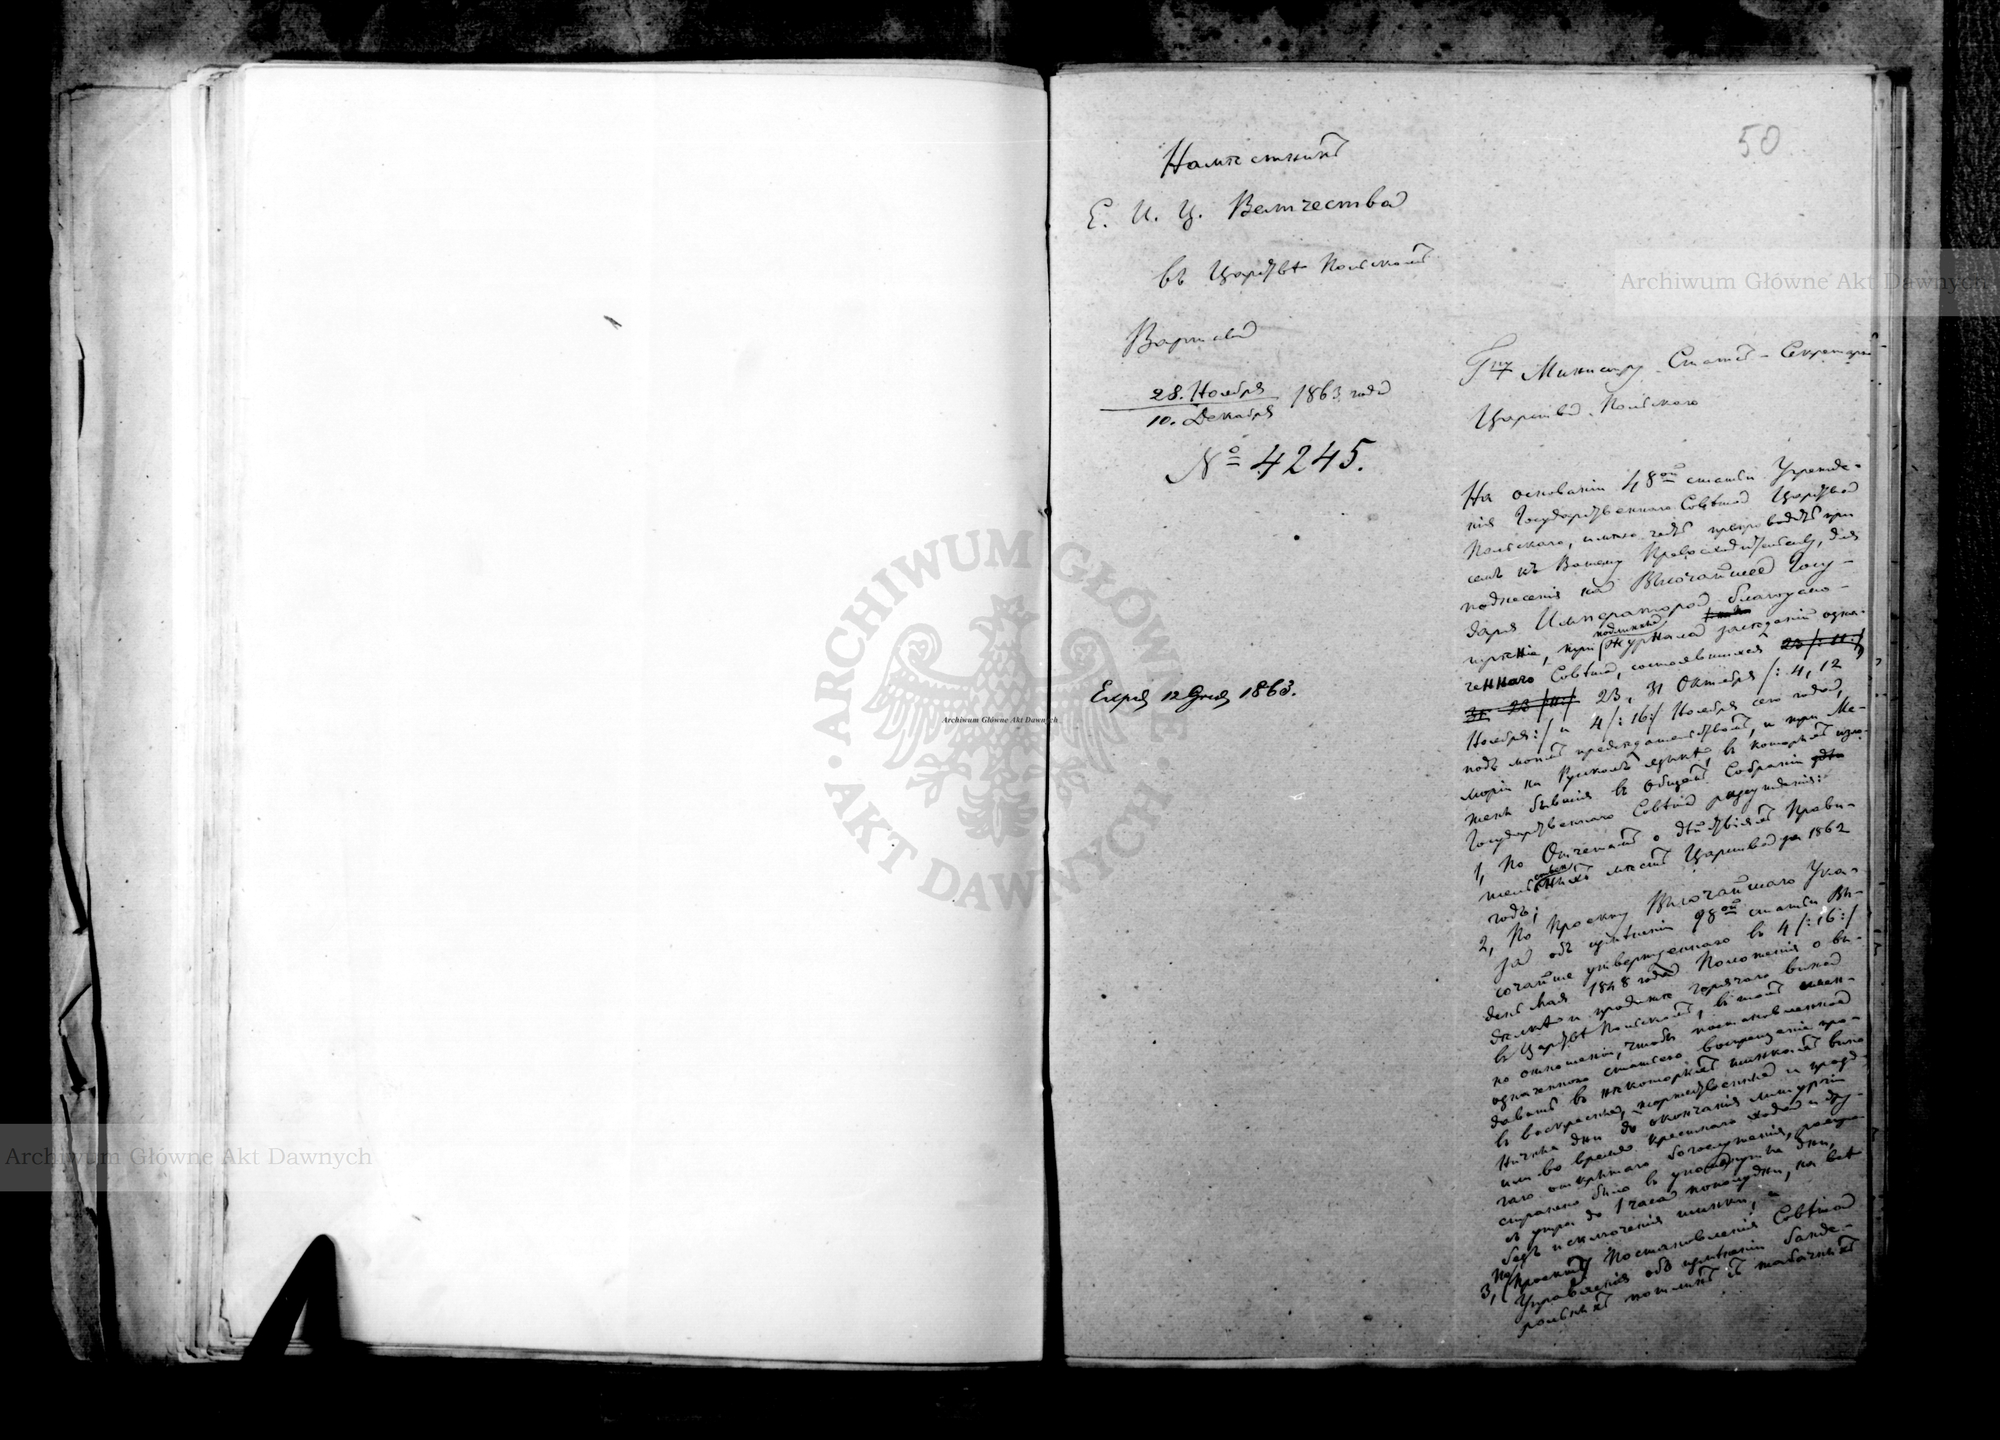 50
Намѣстникъ
Е. И. Ц. Величества
въ Царствѣ Польскомъ
Варшава
28. Ноября
10. Декабря 1863 года
№ 4245.
Експед 12 Grud 1863.
Гну Министру Статсъ-Секретарю
Царства Польскаго
На основаніи 48ой статьи Учрежде-
нія Государственнаго Совѣта Царства
Польскаго, имѣю честь препроводить при
семъ къ Вашему Превосходительству, для
поднесенія на Высочайшее Госу-
даря Императора благоусмо-
трѣніе, при подлинные Журнала засѣданій озна-
ченнаго Совѣта, состоявшихся
23, 31 Октября /: 4, 12
Ноября :/ и 4 /: 16 :/ Ноября сего года,
подъ моимъ предсѣдательствомъ, и при Ме-
моріи на Русскомъ языкѣ, въ которыхъ изло-
жены бывшія въ Общемъ Собраніи
Государственнаго Совѣта разсужденія:
1, По Отчетамъ о дѣйствіяхъ Прави-
тельственныхъ мѣстъ Царства за 1862
годъ;
2, По Проекту Высочайшаго Ука-
за объ измѣненіи 98ой статьи Вы-
сочайше утвержденнаго въ 4 /: 16 :/
день Мая 1848 года Положенія о вы-
дѣлкѣ и продажѣ горячаго вина
въ Царствѣ Польскомъ, въ томъ имен-
но отношеніи, чтобы постановленное
означенною статьею воспрещеніе про-
давать въ нѣкоторыхъ шинкахъ вино
въ воскресные, торжественные и празд-
ничные дни до окончанія литургіи
или во время крестнаго хода и дру-
гаго открытаго богослуженія, распро-
странено было въ упомянутые дни,
съ утра до 1 часа пополудни, на всѣ
безъ исключенія шинки, и
3, По Проекту Постановленія Совѣта
Управленія объ измѣненіи банде-
рольныхъ пошлинъ съ табачныхъ
Archiwum Główne Akt Dawnych
Archiwum Główne Akt Dawnych
Archiwum Główne Akt Dawnych
ARCHIWUM GŁÓWNE · AKT DAWNYCH ·